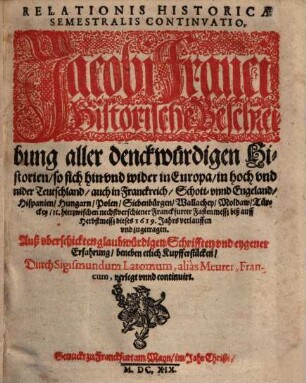 RELATIONIS HISTORICÆ
SEMESTRALIS CONTINVATIO,
Jacobi Franci
Historische Beschrei
bung aller denckwürdigen Hi-
storien/ so sich hin vnd wider in Europa/ in hoch vnd
nider Teutschland/ auch in Franckreich/ Schott- vnnd Engeland/
Hispanien/ Hungarn/ Polen/ Siebenbürgen/ Wallachey/ Moldaw/ Tür-
ckey/ ꝛc. hierzwischen nechstverschiener Franckfurter Fastenmeß/ biß auff
Herbstmeß/ dieses 1619. Jahrs verlauffen
vnd zugetragen.
Auß vberschickten glaubwürdigen Schrifften vnd eygener
Erfahrung/ beneben etlich Kupfferstücken/
Durch Sigismundum Latomum, aliàs Meurer, Fran-
cum, verlegt vnnd continuirt.
Getruckt zu Franckfurt am Mayn/ im Jahr Christi/
M. DC. XIX.